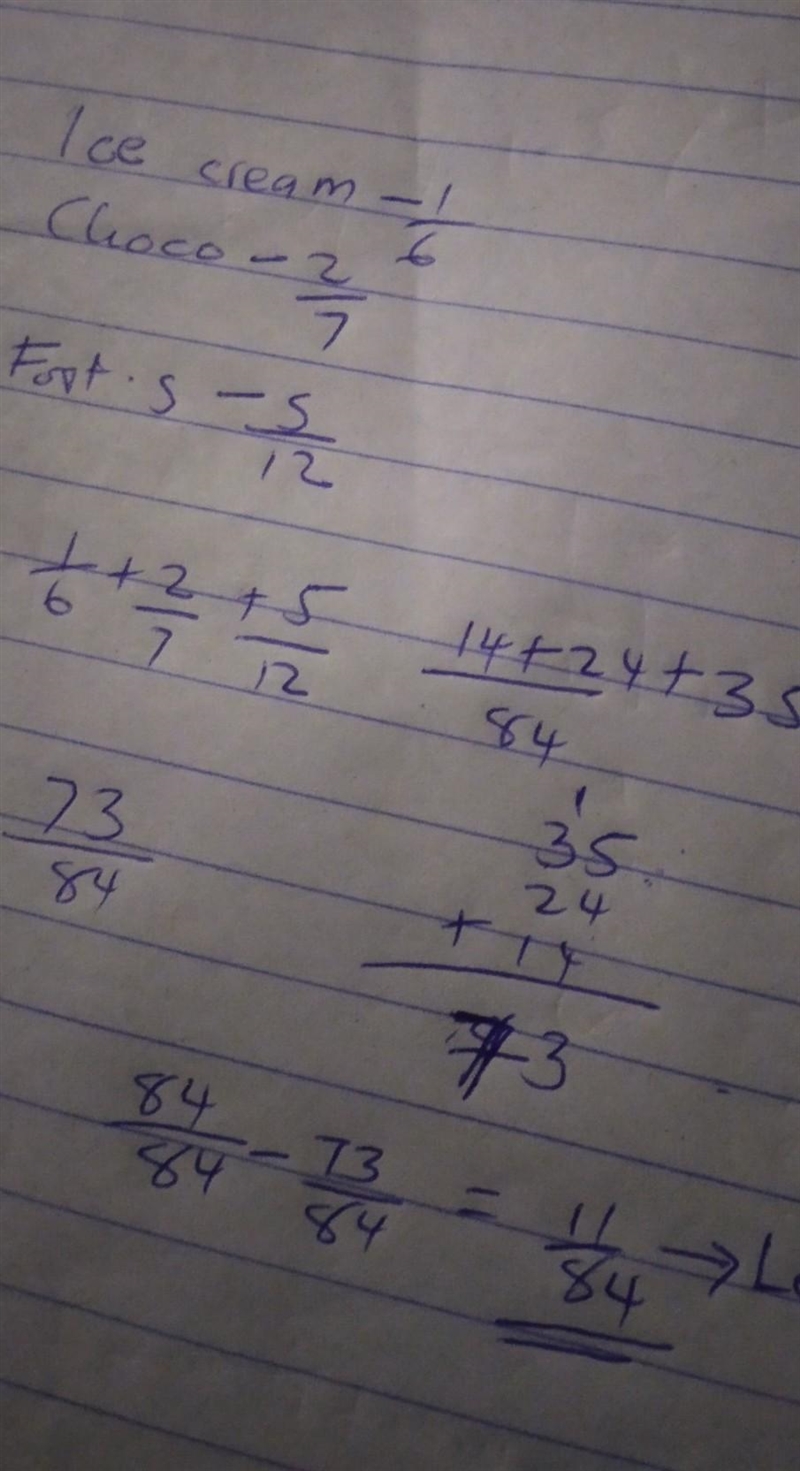 Ice cream - 1/6
Choco - 2/7
Foot.s - 5/12
1/6 + 2/7 + 5/12
14+24+35/84
73/84
1
35
24
+ 14
73
84/84 - 73/84 = 11/84 →